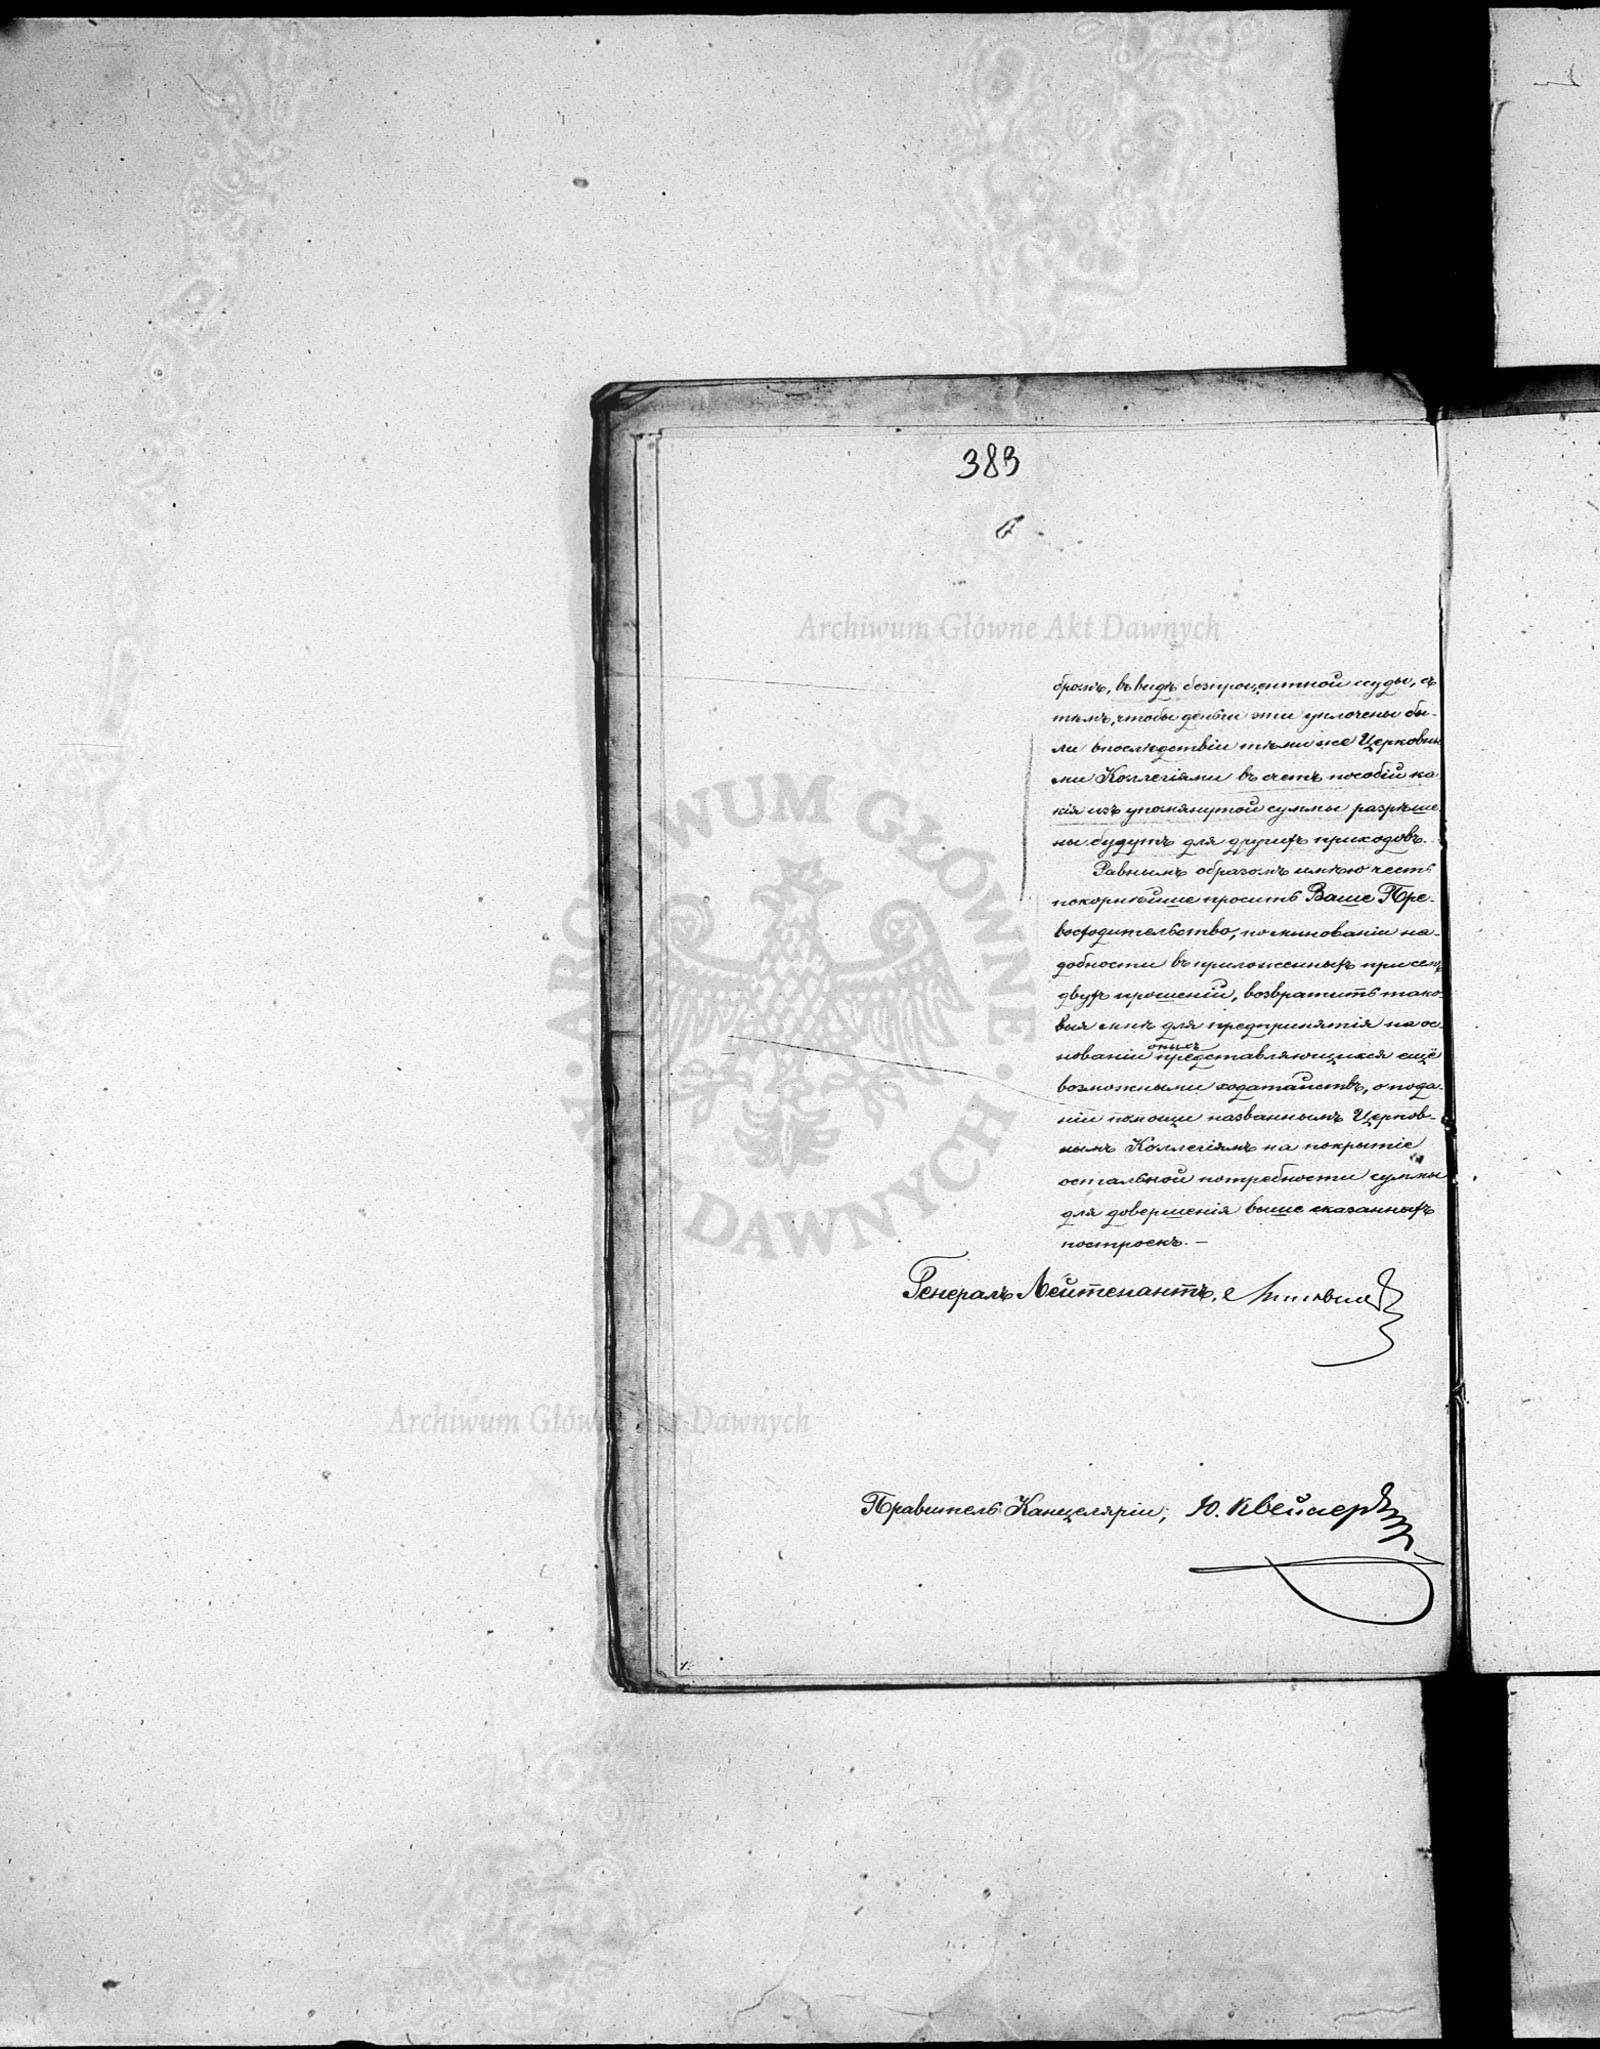 383
Archiwum Główne Akt Dawnych
бромъ, въ видѣ безпроцентной ссуды, съ
тѣмъ, чтобы деньги эти уплочены бы-
ли впослѣдствіи тѣми же Церковны
ми Коллегіями въ счетъ пособій ка
кія изъ упомянутой суммы разрѣше
ны будутъ для другихъ приходовъ.
Равнымъ образомъ имѣю честь
покорнѣйше просить Ваше Пре-
восходительство, по минованіи на-
добности въ приложенныхъ при семъ
двухъ прошеній, возвратить тако-
выя мнѣ для предпринятія на ос-
оныхъ
нованіи представляющихся ещё
возможными ходатайствъ, о пода-
ніи помощи названнымъ Церков-
нымъ Коллегіямъ на покрытіе
остальной потребности суммы
для довершенія выше сказанныхъ
построекъ. —
Генералъ Лейтенантъ,
Archiwum Główne Akt Dawnych
Правитель Канцеляріи, Ю.
ARCHIWUM GŁÓWNE · AKT DAWNYCH ·